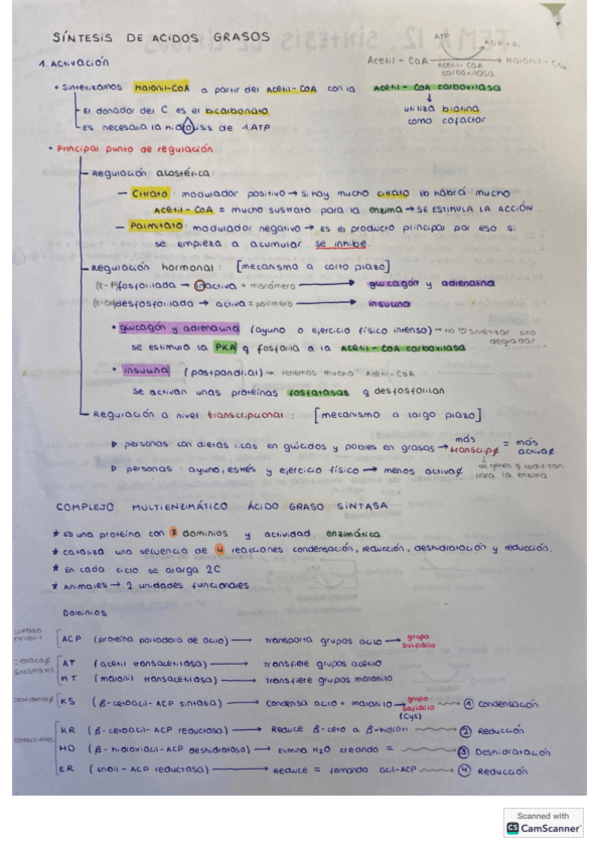 SÍNTESIS DE ACIDOS GRASOS
ATP
ADP + Pi
Acetil - CoA → Malonil - CoA
Acetil - CoA
carboxilasa
1. ACTIVACIÓN
• Sintetizamos Malonil-CoA a partir del Acetil-CoA con la Acetil - CoA carboxilasa
El donador del C es el bicarbonato
utiliza biotina
Es necesaria la hidrólisis de 1 ATP
como cofactor
• Principal punto de regulación
Regulación alostérica
— Citrato: modulador positivo → si hay mucho citrato habrá mucho
Acetil-CoA = mucho sustrato para la enzima → SE ESTIMULA LA ACCIÓN
— Palmitato: modulador negativo → Es el producto principal por eso si
se empieza a acumular se inhibe.
Regulación hormonal: [mecanismo a corto plazo]
fosforilada → inactiva = monómero → glucagón y adrenalina
desfosforilada → activa = polímero → insulina
• glucagón y adrenalina (ayuno o ejercicio físico intenso) → no sintetizar sino
degradar
se estimula la PKA q fosforila a la Acetil - CoA carboxilasa
• insulina (postpandrial) → tenemos mucho Acetil-CoA
se activan unas proteínas fosfatasas q desfosforilan
Regulación a nivel transcripcional: [mecanismo a largo plazo]
▷ personas con dietas ricas en glúcidos y pobres en grasas → más transcripø = más activaø
de genes q codifican
para la enzima
▷ personas ayuno, estrés y ejercicio físico → menos activaø
COMPLEJO MULTIENZIMÁTICO ÁCIDO GRASO SINTASA
* Es una proteína con 7 dominios y actividad enzimática
* Cataliza una secuencia de 4 reacciones condensación, reducción, deshidratación y reducción.
* En cada ciclo se alarga 2C
* Animales → 2 unidades funcionales
Dominios
ACP (proteína portadora de acilo) → transporta grupos acilo → grupo sulfidrilo
AT (acetil transacetilasa) → transfiere grupos acetilo
MT (malonil transacetilasa) → transfiere grupos malonilo
KS (β-cetoacil-ACP sintasa) → condensa acilo + malonilo → grupo sulfidrilo (Cys) ① Condensación
KR (β-cetoacil-ACP reductasa) → Reduce β-ceto a β-hidroxi ② Reducción
HD (β-hidroxiacil-ACP deshidratasa) → elimina H2O creando = ③ Deshidratación
ER (enoil-ACP reductasa) → Reduce = formando acil-ACP ④ Reducción
Scanned with
CS CamScanner